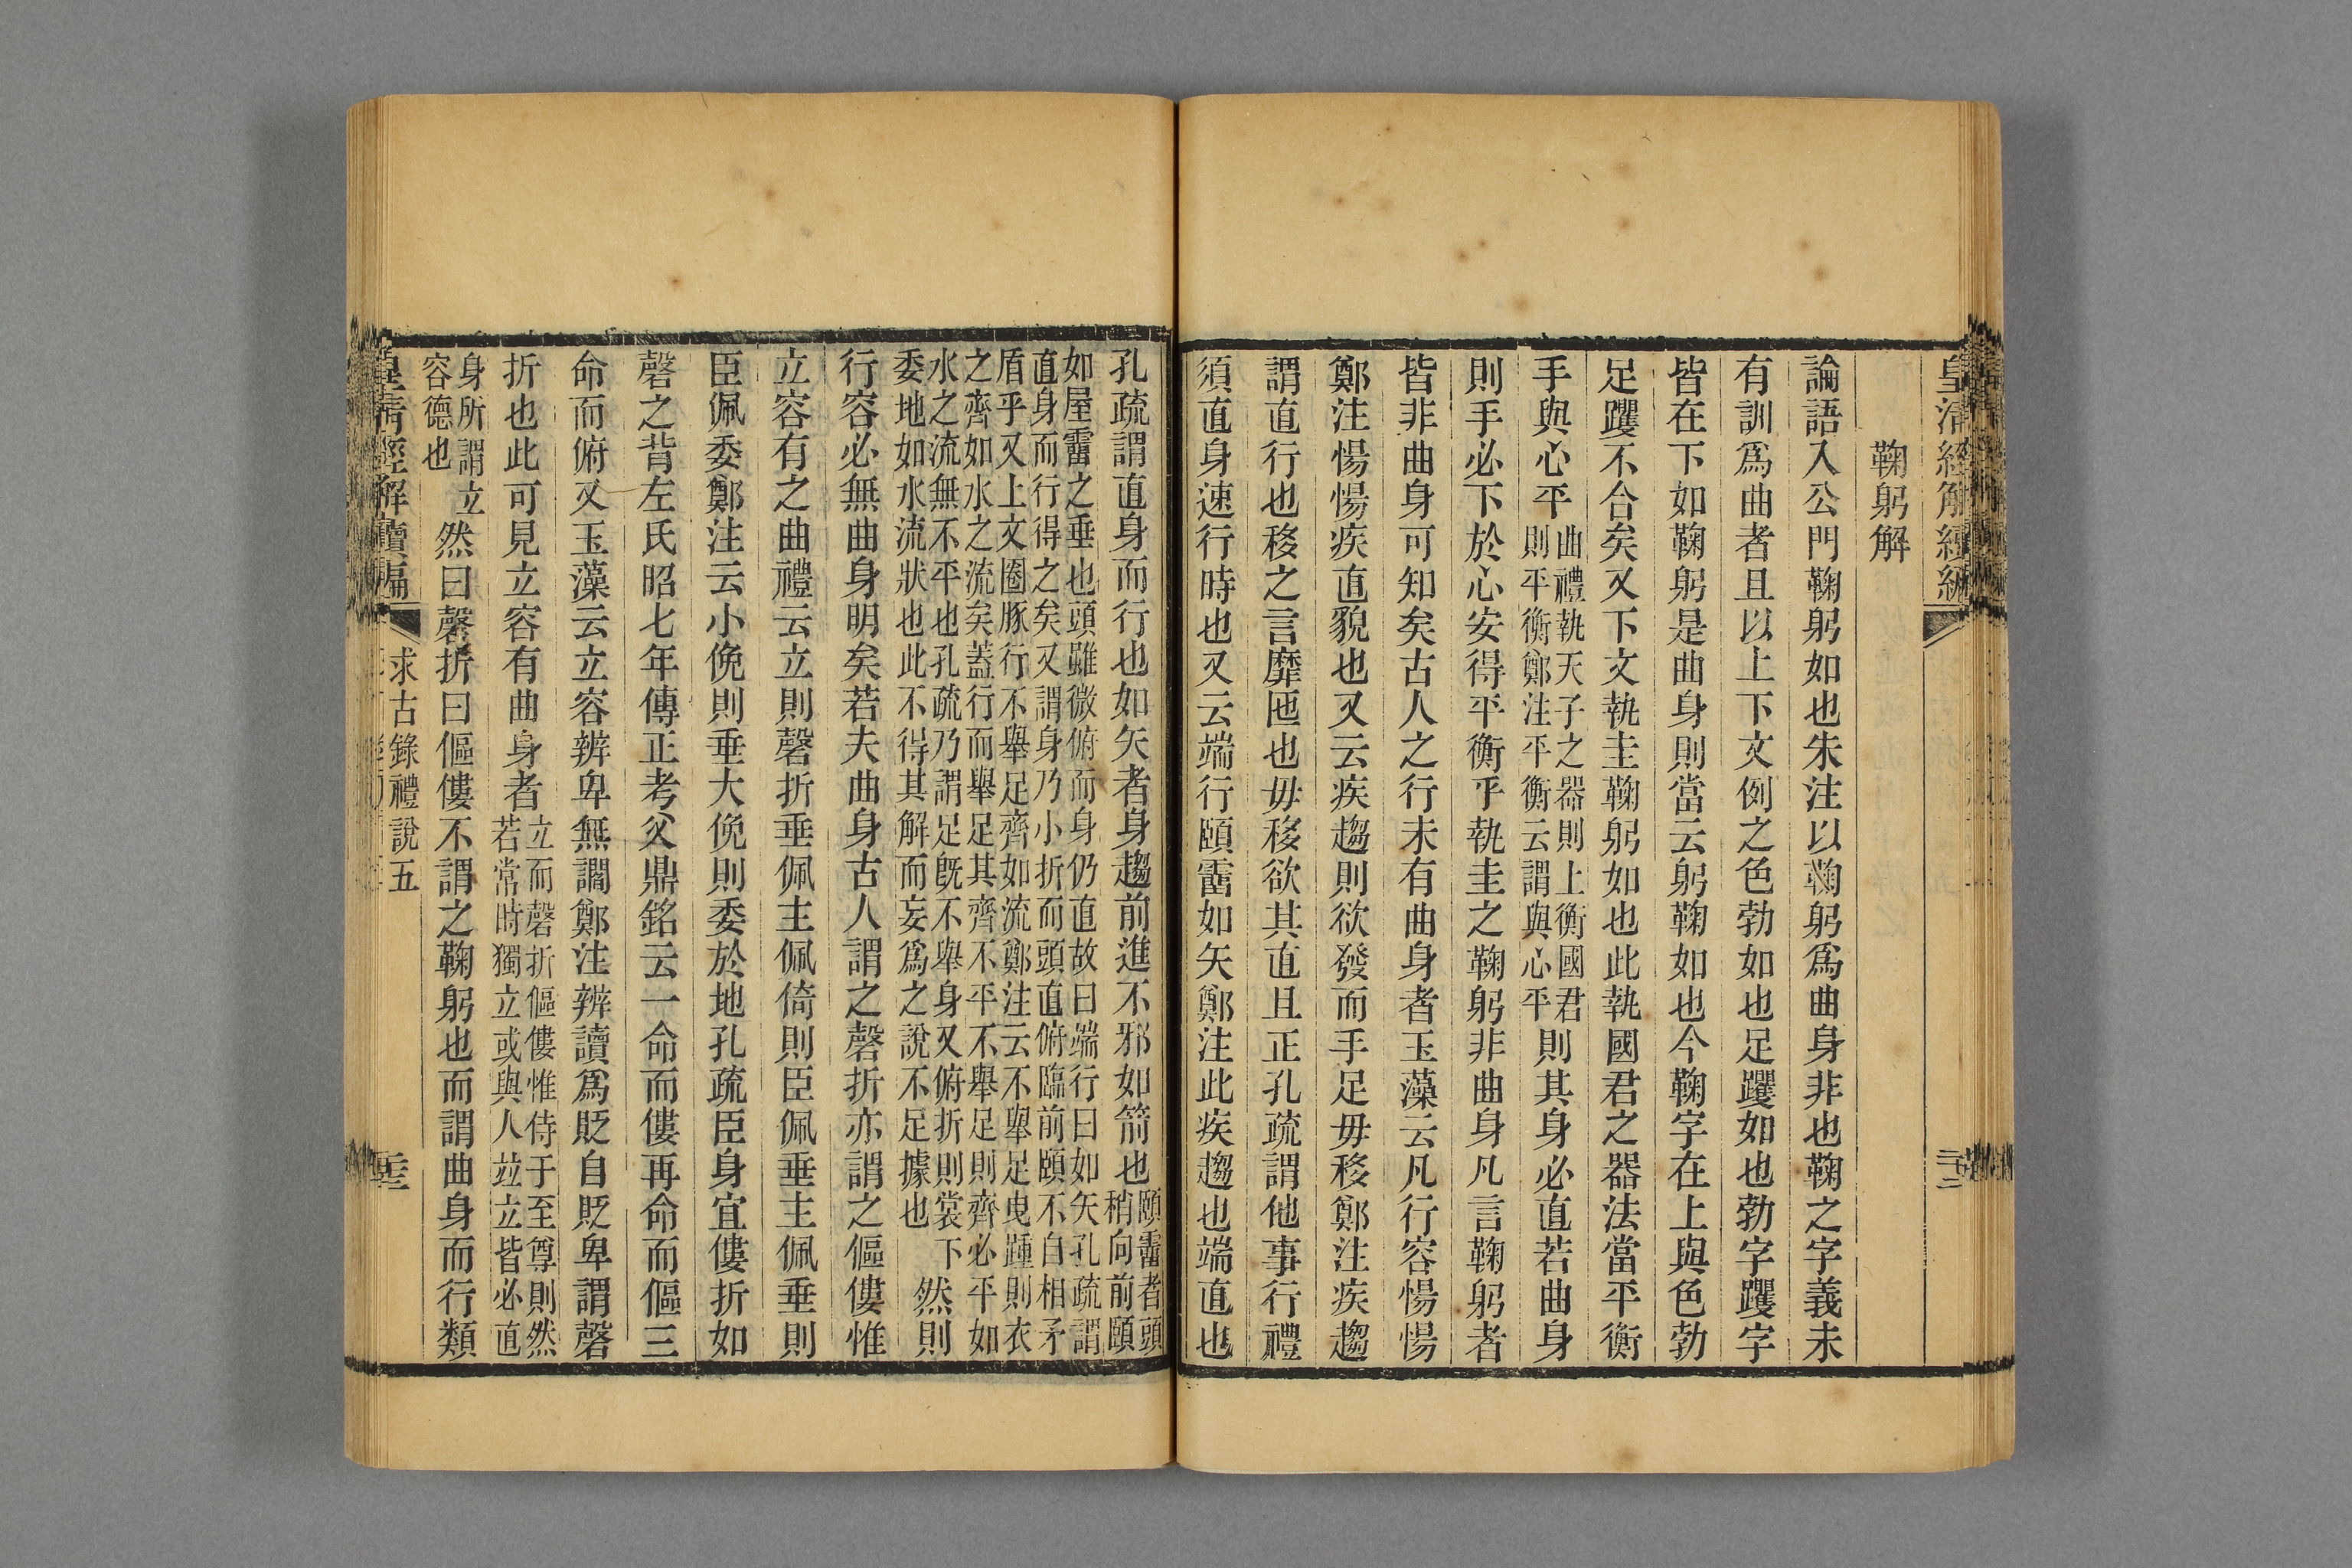 皇清經解續編
二十二
鞠躬解
論語入公門鞠躬如也朱注以鞠躬爲曲身非也鞠之字義未
有訓爲曲者且以上下文例之色勃如也足躩如也勃字躩字
皆在下如鞠躬是曲身則當云躬鞠如也今鞠字在上與色勃
足躩不合矣又下文執圭鞠躬如也此執國君之器法當平衡
手與心平曲禮執天子之器則上衡國君
則平衡鄭注平衡云謂與心平則其身必直若曲身
則手必下於心安得平衡乎執圭之鞠躬非曲身凡言鞠躬者
皆非曲身可知矣古人之行未有曲身者玉藻云凡行容愓愓
鄭注愓愓疾直貌也又云疾趨則欲發而手足毋移鄭注疾趨
謂直行也移之言靡匜也毋移欲其直且正孔疏謂他事行禮
須直身速行時也又云端行頤霤如矢鄭注此疾趨也端直也
孔疏謂直身而行也如矢者身趨前進不邪如箭也頤霤者頭
稍向前頤
如屋霤之垂也頭雖微俯而身仍直故曰端行曰如矢孔疏謂
直身而行得之矣又謂身乃小折而頭直俯臨前頤不自相矛
盾乎又上文圈豚行不舉足齊如流鄭注云不舉足曳踵則衣
之齊如水之流矣蓋行而舉足其齊不平不舉足則齊必平如
水之流無不平也孔疏乃謂足既不舉身又俯折則裳下
委地如水流狀也此不得其解而妄爲之說不足據也然則
行容必無曲身明矣若夫曲身古人謂之磬折亦謂之傴僂惟
立容有之曲禮云立則磬折垂佩主佩倚則臣佩垂主佩垂則
臣佩委鄭注云小俛則垂大俛則委於地孔疏臣身宜僂折如
磬之背左氏昭七年傳正考父鼎銘云一命而僂再命而傴三
命而俯又玉藻云立容辨卑無讇鄭注辨讀爲貶自貶卑謂磬
折也此可見立容有曲身者立而磬折傴僂惟侍于至尊則然
若常時獨立或與人竝立皆必直
身所謂立
容德也然曰磬折曰傴僂不謂之鞠躬也而謂曲身而行類
皇清經解續編
求古錄禮說五
二十三